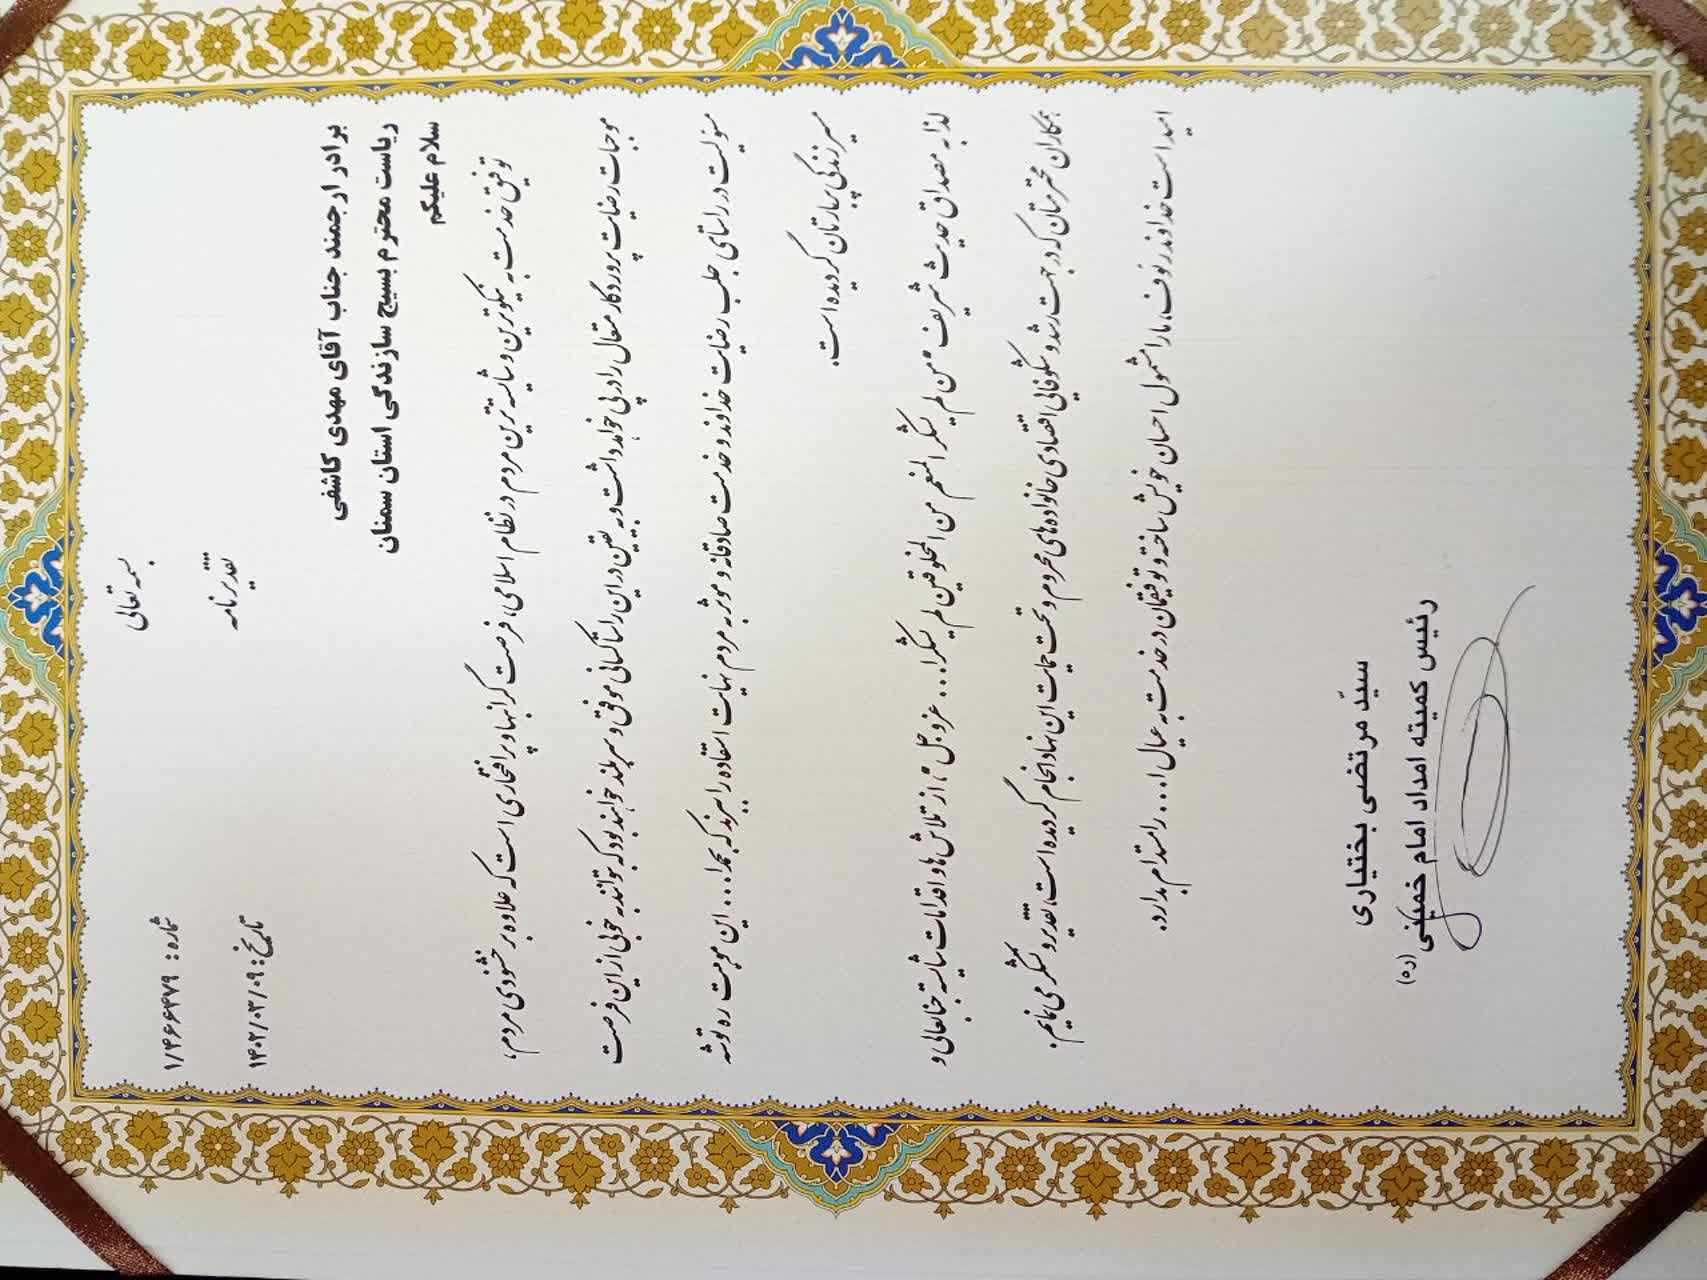 بسمه تعالی
شماره: ۱/۴۶۶۴۷۹
تقدیرنامه
تاریخ: ۱۴۰۲/۰۳/۰۹
برادر ارجمند جناب آقای مهدی کاشفی
ریاست محترم بسیج سازندگی استان سمنان
سلام علیکم
توفیق خدمت به نیکوترین و شایسته ترین مردم در نظام اسلامی، فرصت گرانبها و پر افتخاری است که علاوه بر خشنودی مردم،
موجبات رضایت پروردگار متعال را در پی خواهد داشت و به یقین در این راستا کسانی موفق و سربلند خواهند بود که بتوانند به خوبی از این فرصت
مسئولیت در راستای جلب رضایت خداوند و خدمت صادقانه و موثر به مردم نهایت استفاده را ببرند که بحمدا... این موهبت ره توشه
مسیر زندگی پربارتان گردیده است.
لذا به مصداق حدیث شریف "من لم یشکر المنعم من المخلوقین لم یشکرا... عزوجل"، از تلاش ها و اقدامات شایسته جنابعالی و
همکاران محترمتان که در جهت رشد و شکوفایی اقتصادی خانواده های محروم و تحت حمایت این نهاد انجام گردیده است، تقدیر و تشکر می نمایم.
امید است خداوند رئوف، ما را مشمول احسان خویش ساخته و توفیقمان در خدمت به عیال ا... را مستدام بدارد.
سیّد مرتضی بختیاری
رئیس کمیته امداد امام خمینی (ره)